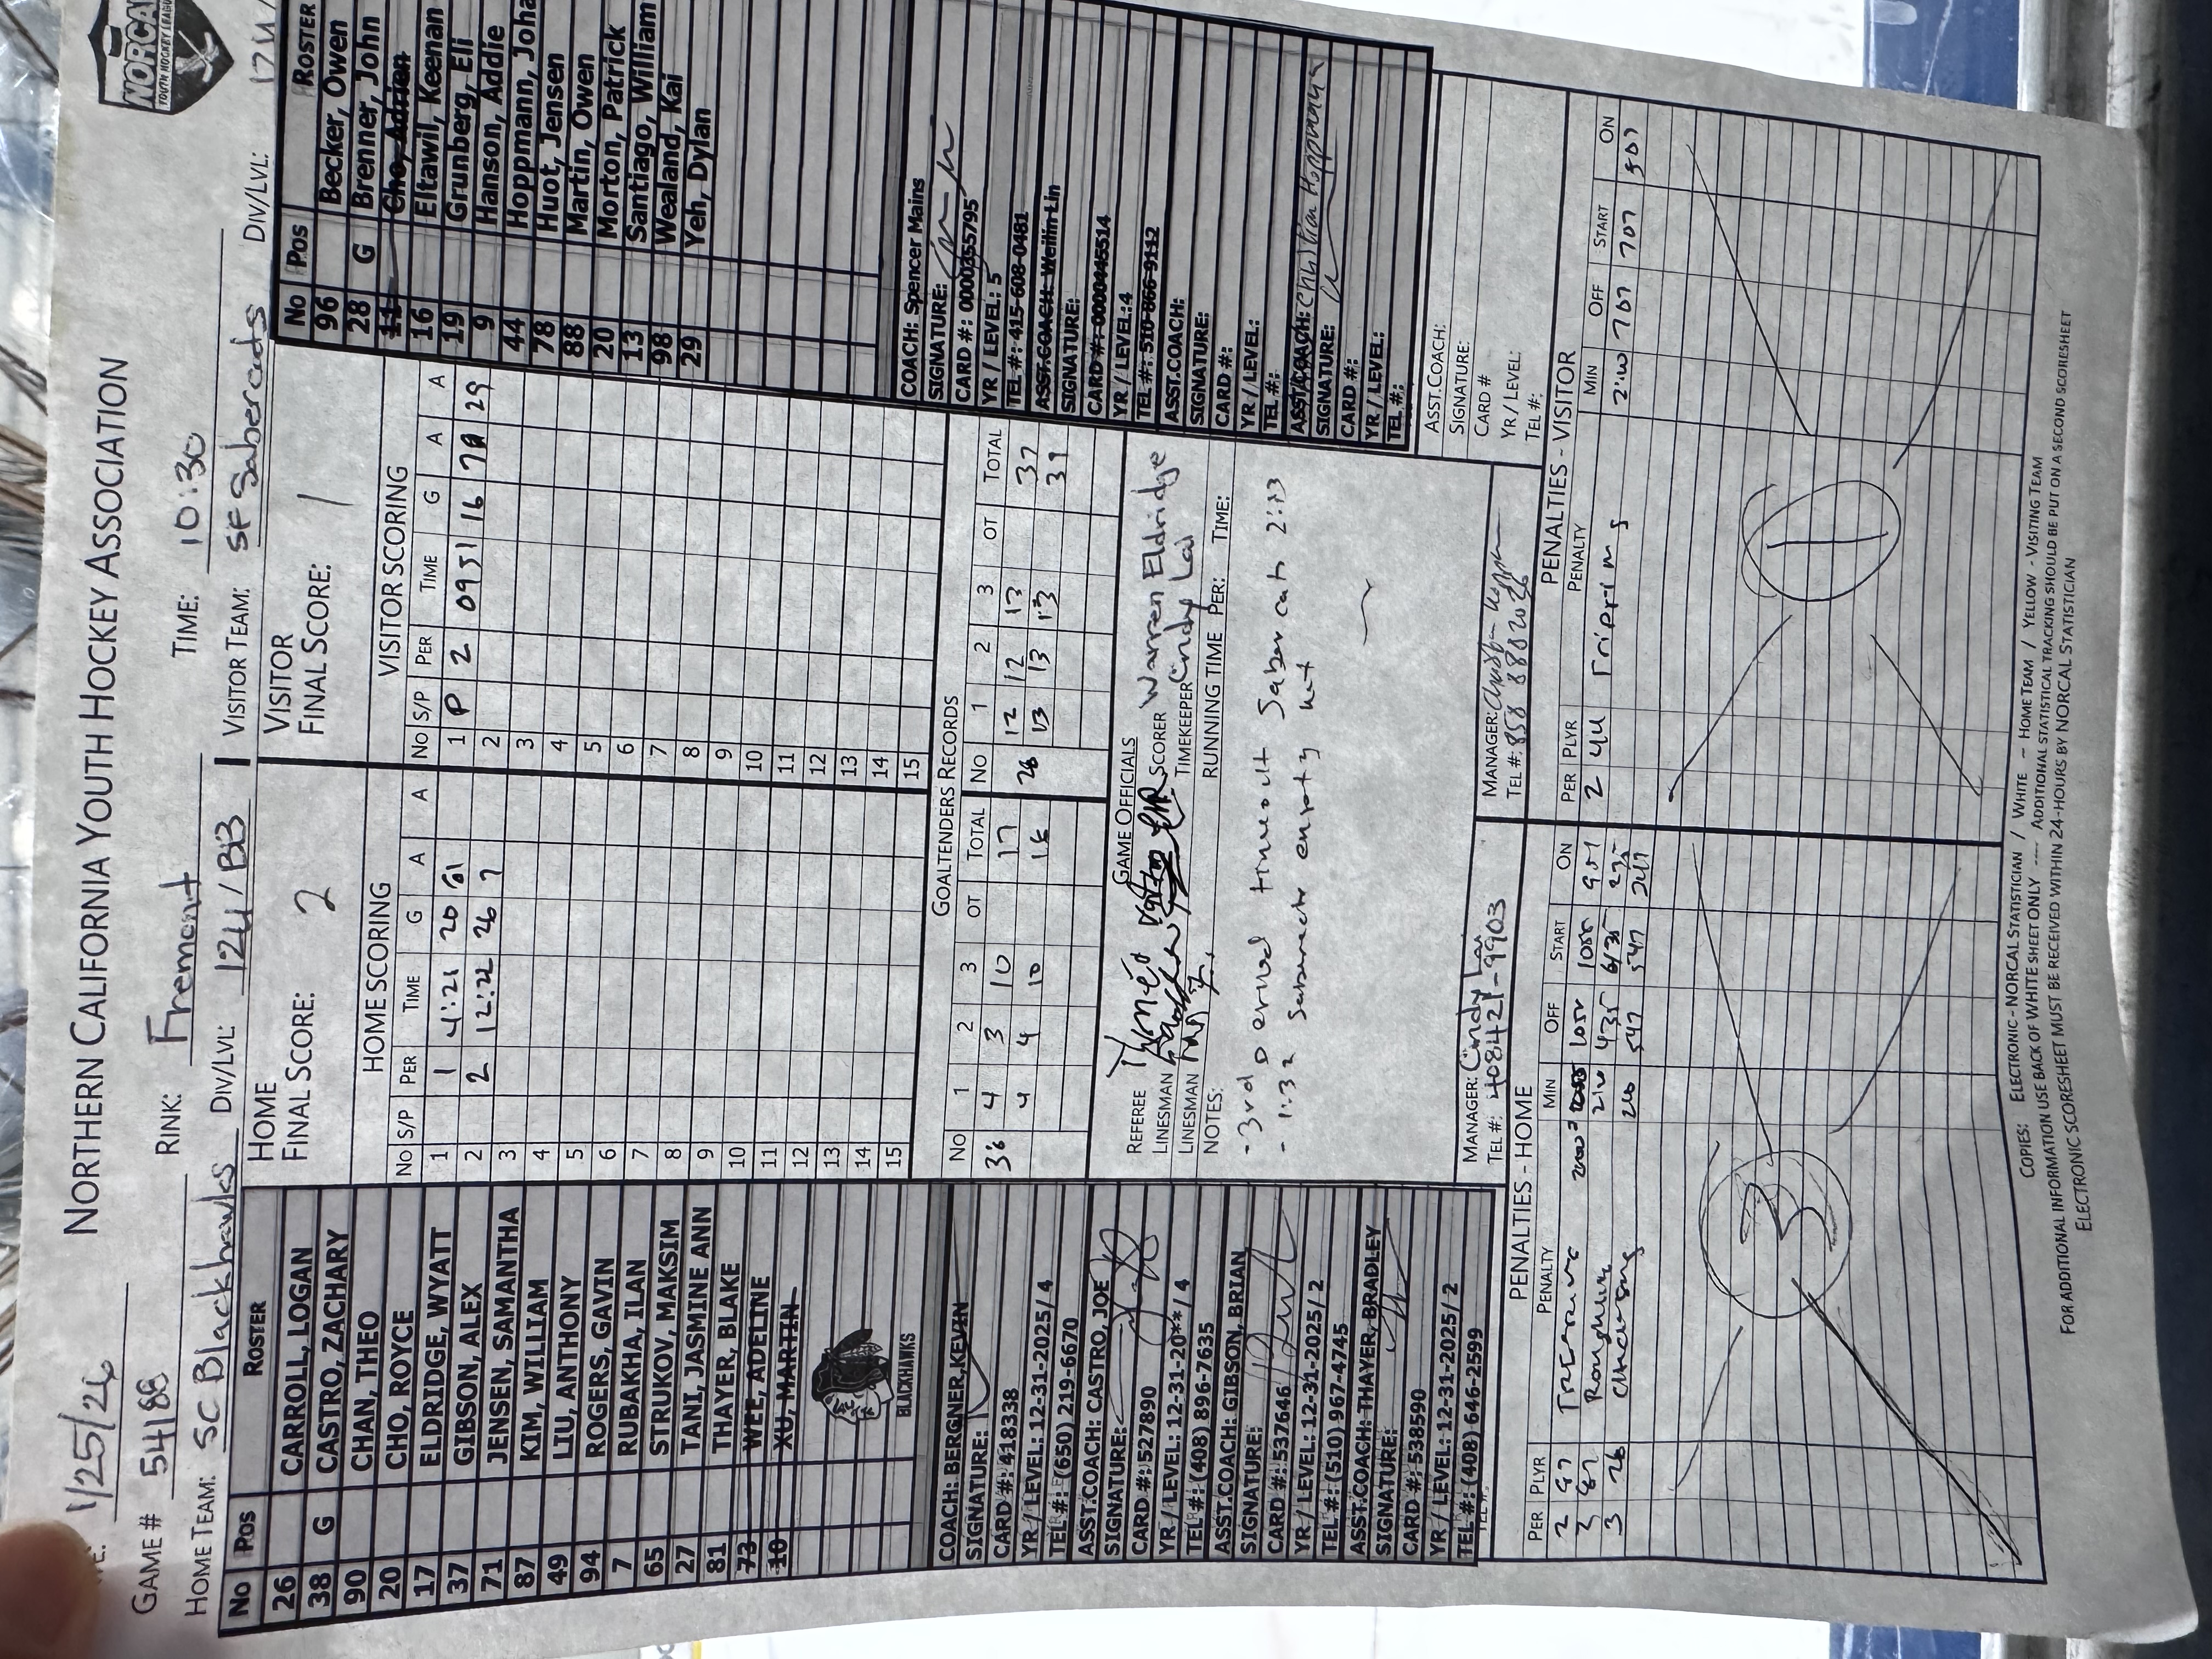 NORTHERN CALIFORNIA YOUTH HOCKEY ASSOCIATION
NORCAL
YOUTH HOCKEY LEAGUE
1/25/26
GAME # 54188 RINK: Fremont TIME: 10:30
HOME TEAM: SC Blackhawks DIV/LVL: 12U/BB VISITOR TEAM: SF Sabercats DIV/LVL: 12U/
No Pos ROSTER
26 CARROLL, LOGAN
38 G CASTRO, ZACHARY
90 CHAN, THEO
20 CHO, ROYCE
17 ELDRIDGE, WYATT
37 GIBSON, ALEX
71 JENSEN, SAMANTHA
87 KIM, WILLIAM
49 LIU, ANTHONY
94 ROGERS, GAVIN
7 RUBAKHA, ILAN
65 STRUKOV, MAKSIM
27 TANI, JASMINE ANN
81 THAYER, BLAKE
73 WEE, ADELINE
10 XU, MARTIN
BLACKHAWKS
COACH: BERGNER, KEVIN
SIGNATURE:
CARD #: 418338
YR / LEVEL: 12-31-2025/ 4
TEL #: (650) 219-6670
ASST.COACH: CASTRO, JOE
SIGNATURE:
CARD #: 527890
YR / LEVEL: 12-31-20**/ 4
TEL #: (408) 896-7635
ASST.COACH: GIBSON, BRIAN
SIGNATURE:
CARD #: 537646
YR / LEVEL: 12-31-2025/ 2
TEL #: (510) 967-4745
ASST.COACH: THAYER, BRADLEY
SIGNATURE:
CARD #: 538590
YR / LEVEL: 12-31-2025/ 2
TEL #: (408) 646-2599
HOME
FINAL SCORE: 2
HOME SCORING
No S/P PER TIME G A A
1 1 4:21 20 81
2 2 12:22 26 7
3
4
5
6
7
8
9
10
11
12
13
14
15
VISITOR
FINAL SCORE: 1
VISITOR SCORING
No S/P PER TIME G A A
1 P 2 0951 16 78 29
2
3
4
5
6
7
8
9
10
11
12
13
14
15
GOALTENDERS RECORDS
No 1 2 3 OT TOTAL No 1 2 3 OT TOTAL
38 4 3 10 17 28 12 12 13 37
4 4 10 18 13 13 13 39
GAME OFFICIALS
REFEREE
LINESMAN
LINESMAN
SCORER Warren Eldridge
TIMEKEEPER Cindy Lai
RUNNING TIME PER: TIME:
NOTES:
- 3rd period timeout Sabercats 2:13
- 1:32 Sabercats empty net
MANAGER: Cindy Lai
TEL #: 408421-9903
MANAGER:
TEL #: 858
No Pos ROSTER
96 Becker, Owen
28 G Brenner, John
11 Cho, Adrien
16 Eltawil, Keenan
19 Grunberg, Eli
9 Hanson, Addie
44 Hoppmann, Joha
78 Huot, Jensen
88 Martin, Owen
20 Morton, Patrick
13 Santiago, William
98 Wealand, Kai
29 Yeh, Dylan
COACH: Spencer Mains
SIGNATURE:
CARD #: 0000355795
YR / LEVEL: 5
TEL #: 415-608-0481
ASST.COACH: Weilin Lin
SIGNATURE:
CARD #: 0000445514
YR / LEVEL: 4
TEL #: 510-866-9112
ASST.COACH:
SIGNATURE:
CARD #:
YR / LEVEL:
TEL #:
ASST.COACH: Christian Hoppmann
SIGNATURE:
CARD #:
YR / LEVEL:
TEL #:
ASST.COACH:
SIGNATURE:
CARD #
YR / LEVEL:
TEL #:
PENALTIES - HOME
PER PLYR PENALTY MIN OFF START ON
2 87
3 87 Roughing 435 635
3 26 547 547 347
3
PENALTIES - VISITOR
PER PLYR PENALTY MIN OFF START ON
2 44 Tripping 2:00 707 707 507
1
COPIES: ELECTRONIC - NORCAL STATISTICIAN / WHITE - HOME TEAM / YELLOW - VISITING TEAM
FOR ADDITIONAL INFORMATION USE BACK OF WHITE SHEET ONLY ---- ADDITIONAL STATISTICAL TRACKING SHOULD BE PUT ON A SECOND SCORESHEET
ELECTRONIC SCORESHEET MUST BE RECEIVED WITHIN 24-HOURS BY NORCAL STATISTICIAN